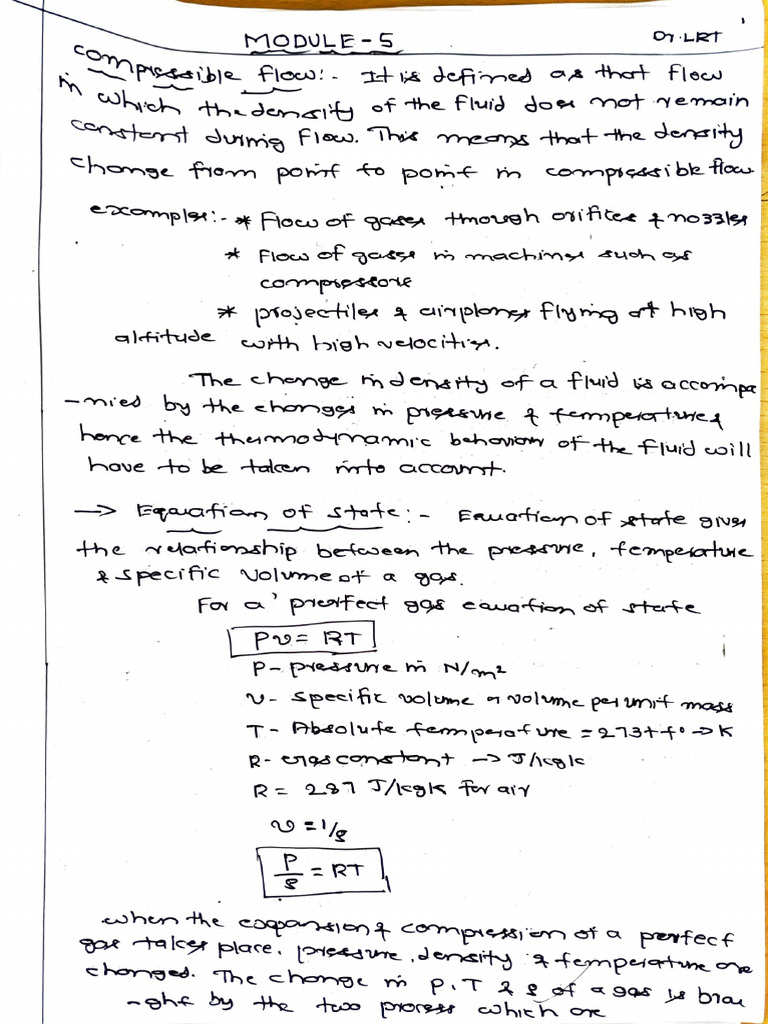 MODULE-5
Dr. LRT
compressible flow:- It is defined as that flow
in which the density of the fluid does not remain
constant during flow. This means that the density
change from point to point in compressible flow.
examples:- * Flow of gases through orifices & nozzles
* Flow of gases in machines such as
compressors
* projectiles & airplanes flying at high
altitude with high velocities.
The change in density of a fluid is accompa
-nied by the changes in pressure & temperature &
hence the thermodynamic behaviour of the fluid will
have to be taken into account.
→ Equation of state:- Equation of state gives
the relationship between the pressure, temperature
& specific volume of a gas.
For a perfect gas equation of state
Pv = RT
P- pressure in N/m²
v- specific volume or volume per unit mass
T- Absolute temperature = 273+t° → K
R- Gas constant → J/kgk
R = 287 J/kgk for air
v = 1/ρ
P/ρ = RT
when the expansion & compression of a perfect
gas takes place, pressure, density & temperature are
changed. The change in P, T & ρ of a gas is brou
-ght by the two process which are